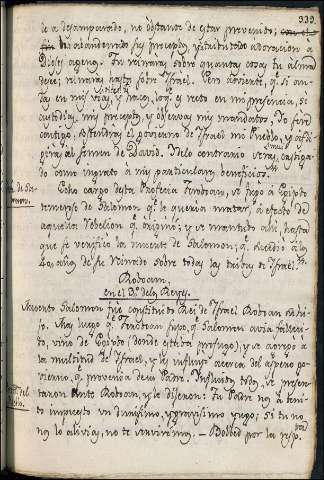 339.
le a desamparado, no obstante de estar prevenido;
ha abandonado sus preceptos, y tributado adoracion a
Dioses agenos. Tu reinaras sobre quantas cosas tu alma
desee; reinaras hasta sobre Israel. Pero advierte, q.e si an-
das en mis vias, y haces lo q.e es recto en mi presencia, si
custodias mis preceptos, y observas mis mandatos, Yo seré
contigo, obtendras el govierno de Israel mi Pueblo, y
al Semen de David. Delo contrario seras castiga-
do como ingrato a mis particulares beneficios.
Echo cargo desta Profecia Jeroboam, se fugó a Egipto
temeroso de Salomon q.e le queria matar, á efecto de
aquella rebelion q.e originó; y se mantubo ahi, hasta
que se verificó la muerte de Salomon; q.e sucedió á los
40. años de su Reinado sobre todas las tribus de Israel.
Roboam,
en el 3.º delos Reyes.
Muerto Salomon fue constituido Rei de Israel Roboam su hi-
jo. Mas luego q.e Jeroboam supo, q.e Salomon avia falleci-
do, vino de Egipto (donde estaba profugo), y se agregó á
la multitud de Israel, y les influyó acerca del aspero go-
vierno, q.e provenia de su Padre. Influidos todos, se presen-
taron ante Roboam, y le dijeron: Tu Padre nos á
impuesto un durisimo, y gravisimo yugo; si tu no
nos lo alivias, no te serviremos. — Bolved por la resp.